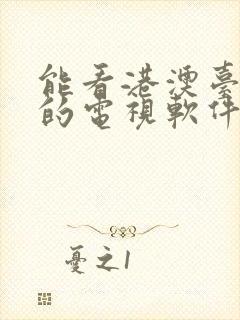 能看港澳臺
的電視軟件
憂之1